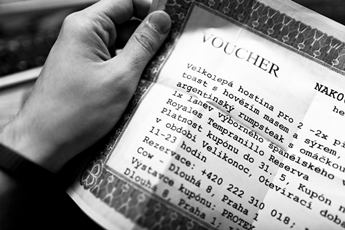 VOUCHER
NAKO
velkolepá hostina pro 2 -2x p
toast s hovězím masem a sýrem
argentinský rumpsteak s omáčkou
1x lahev výborného španělského v
Royales Tempranillo Reserva
platnost kuponu do 31. 5, Kupón n
v období Velikonoc, Otevírací dob
11-23 hodin
Rezervace: +420 222 310 018;
Cow - Dlouhá 8, Praha 1
Výstavce kupónu, PROTEK
Dlouhá 8, Praha